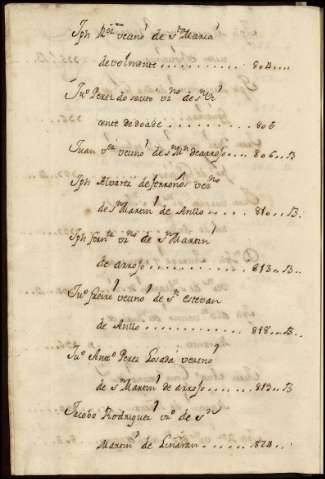 Jph Roiz vecino de Sta Maria
de volmente . . . . . . . . . 804 . . . .
Juo Perez do souto vzno de sn Vi
cente de doade . . . . . . . . . . 806
Juan vecino de sn Mrn de arrojo . . 806 . . B
Jph Alvarez de ferronos vecno
de Sn Martin de Anllo . . . . . . . 810 . . . B.
Jph vzno de Sn Martin
de arrojo . . . . . . . . . . . . . 813 . . B . .
Juo freire vecino de Sn estevan
de Anllo . . . . . . . . . . . . . . 818 . . B . .
Juo Anto Perez Losada vecino
de Sn Martin de arrojo . . . . . . . 819 . . B
Jacobo Rodriguez vzo de Sn
Martin de Liñaran . . . . . . 824 . .